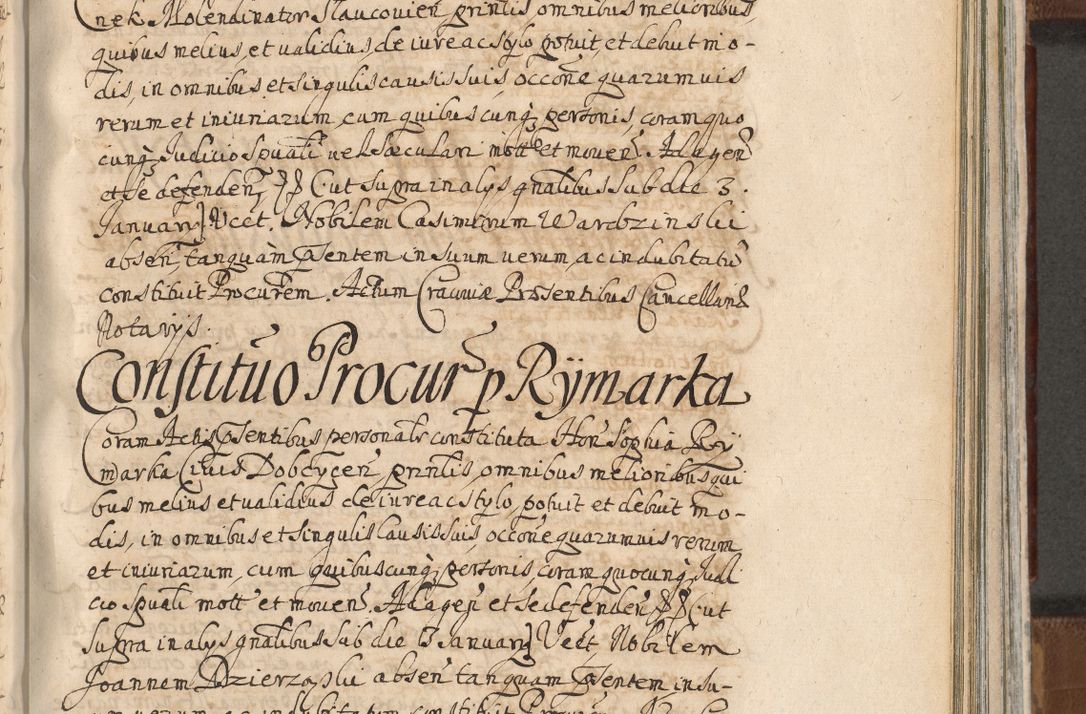 nek Molendinator Slaucovień, grinlis omnibus melioribus
quibus melius, et validius, de iure ac stylo potuit, et debuit mo-
dis, in omnibus et singulis causis suis, occõne quarumuis
rerum et iniuriarum, cum quibuscunq, personis, coram quo
cunq, Judicio Spuali vel Sæculari mott et mouen. Ad agen
et se defenden, Cut supra in alys gnalibus sub die 3.
January] Vcet. Nobilem Casimirum Wardzinskii
absen, tanquàm psentem in suum uerum, ac indubitatū
constituit Procurem. Actum Cracouiæ Præsentibus Cancellariæ
Notarys.
Constituõ Procur p Rÿmarka
Coram Actis psentibus personalr constituta Hon Sophia Rÿ
marka Ciuis Dobcÿcen, grinlis, omnibus melioribus, qui
bus melius et validius de iure ac stylo, potuit et debuit mo-
dis, in omnibus et singulis causis suis, occone quarumuis rerum
et iniuriarum, cum quibuscunq, personis, coram quocunq, Judi
cio Spuali mott et mouen. Ad agen et se defenden Cut
supra in alys gnalibus sub die 3 January] Vcet, Nobilem
Joannem Dzierza, absen tanquam psentem, in su-